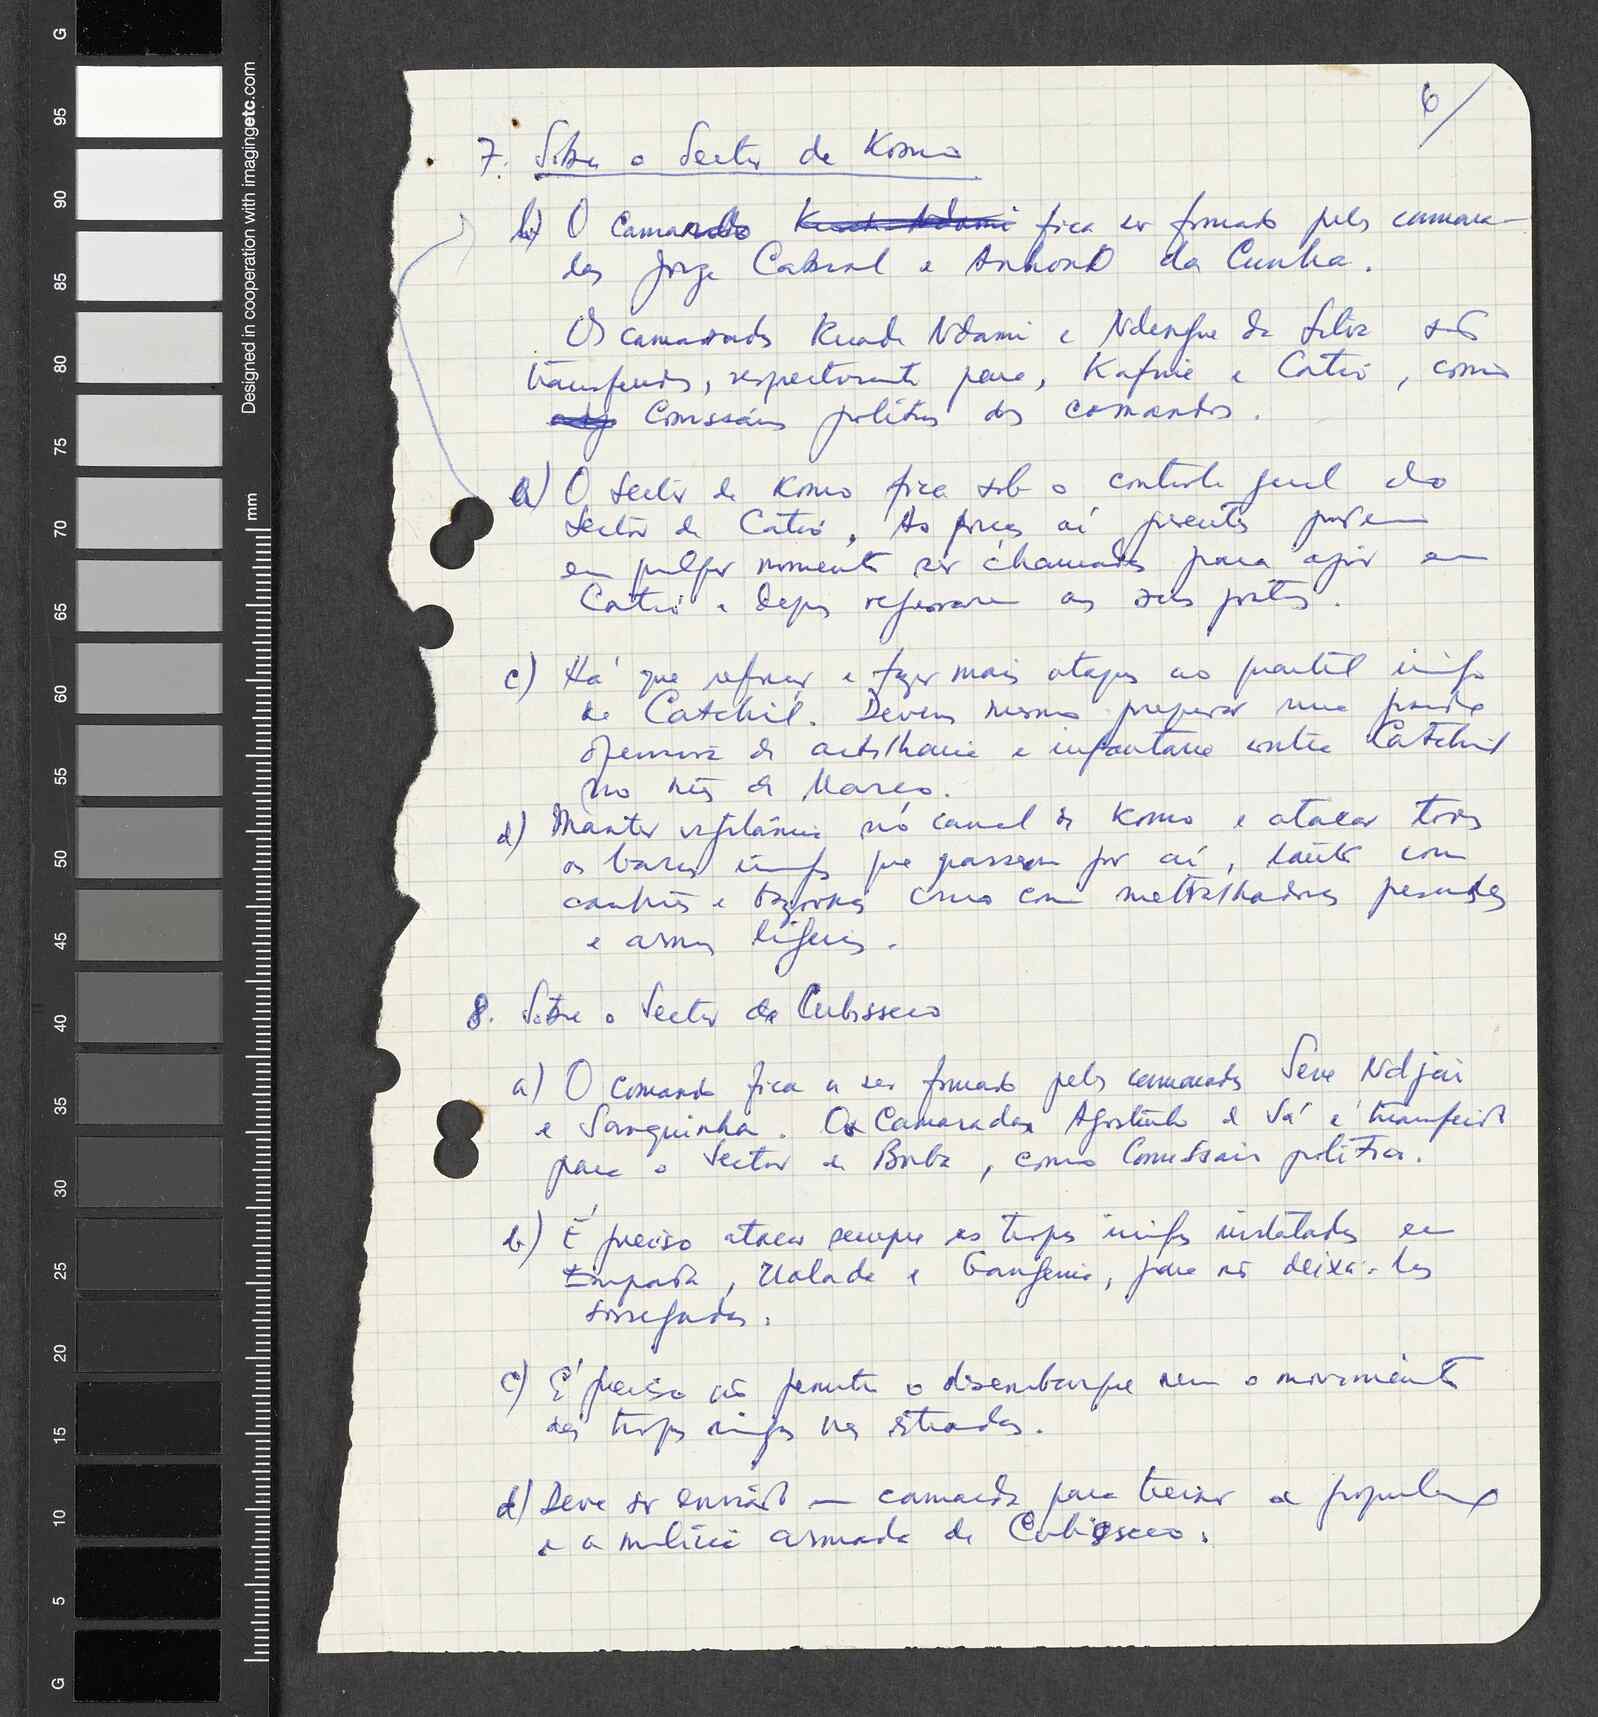 6/
7. Sobre o Sector de Komo
b) O Comando Kuade Ndami fica ser formado pelos camara-
das Jorge Cabral e António da Cunha.
Os camaradas Kuade Ndami e Ndengue da Silva são
transferidos, respectivamente para, Kafine e Catió, como
Comissários políticos dos comandos.
a) O Sector de Komo fica sob o controle geral do
Sector de Catió. As forças aí presentes podem
em qualquer momento ser chamadas para agir em
Catió e depois regressarem aos seus postos.
c) Há que reforçar e fazer mais ataques ao quartel inimigo
de Catchil. Devem mesmo preparar uma grande
ofensiva de artilharia e infantaria contra Catchil
no mês de Março.
d) Manter vigilância no canal de Komo e atacar todos
os barcos inimigos que passem por aí, tanto com
canhões e bazookas como com metralhadoras pesadas
e armas ligeiras.
8. Sobre o Sector de Cubisseco
a) O comando fica a ser formado pelos camaradas Seve Ndjai
e Sanguinha. O Camarada Agostinho de Sá é transferido
para o Sector de Buba, como Comissário político.
b) É preciso atacar sempre as tropas inimigas instaladas em
Empada, Ualada e Gangenia, para não deixá-las
sossegadas.
c) É preciso não permitir o desembarque nem o movimento
das tropas inimigas nas estradas.
d) Deve ser enviado um camarada para treinar a população
e a milícia armada de Cubisseco.
Designed in cooperation with imagingetc.com
mm
G
95
90
85
80
75
70
65
60
55
50
45
40
35
30
25
20
15
10
5
G